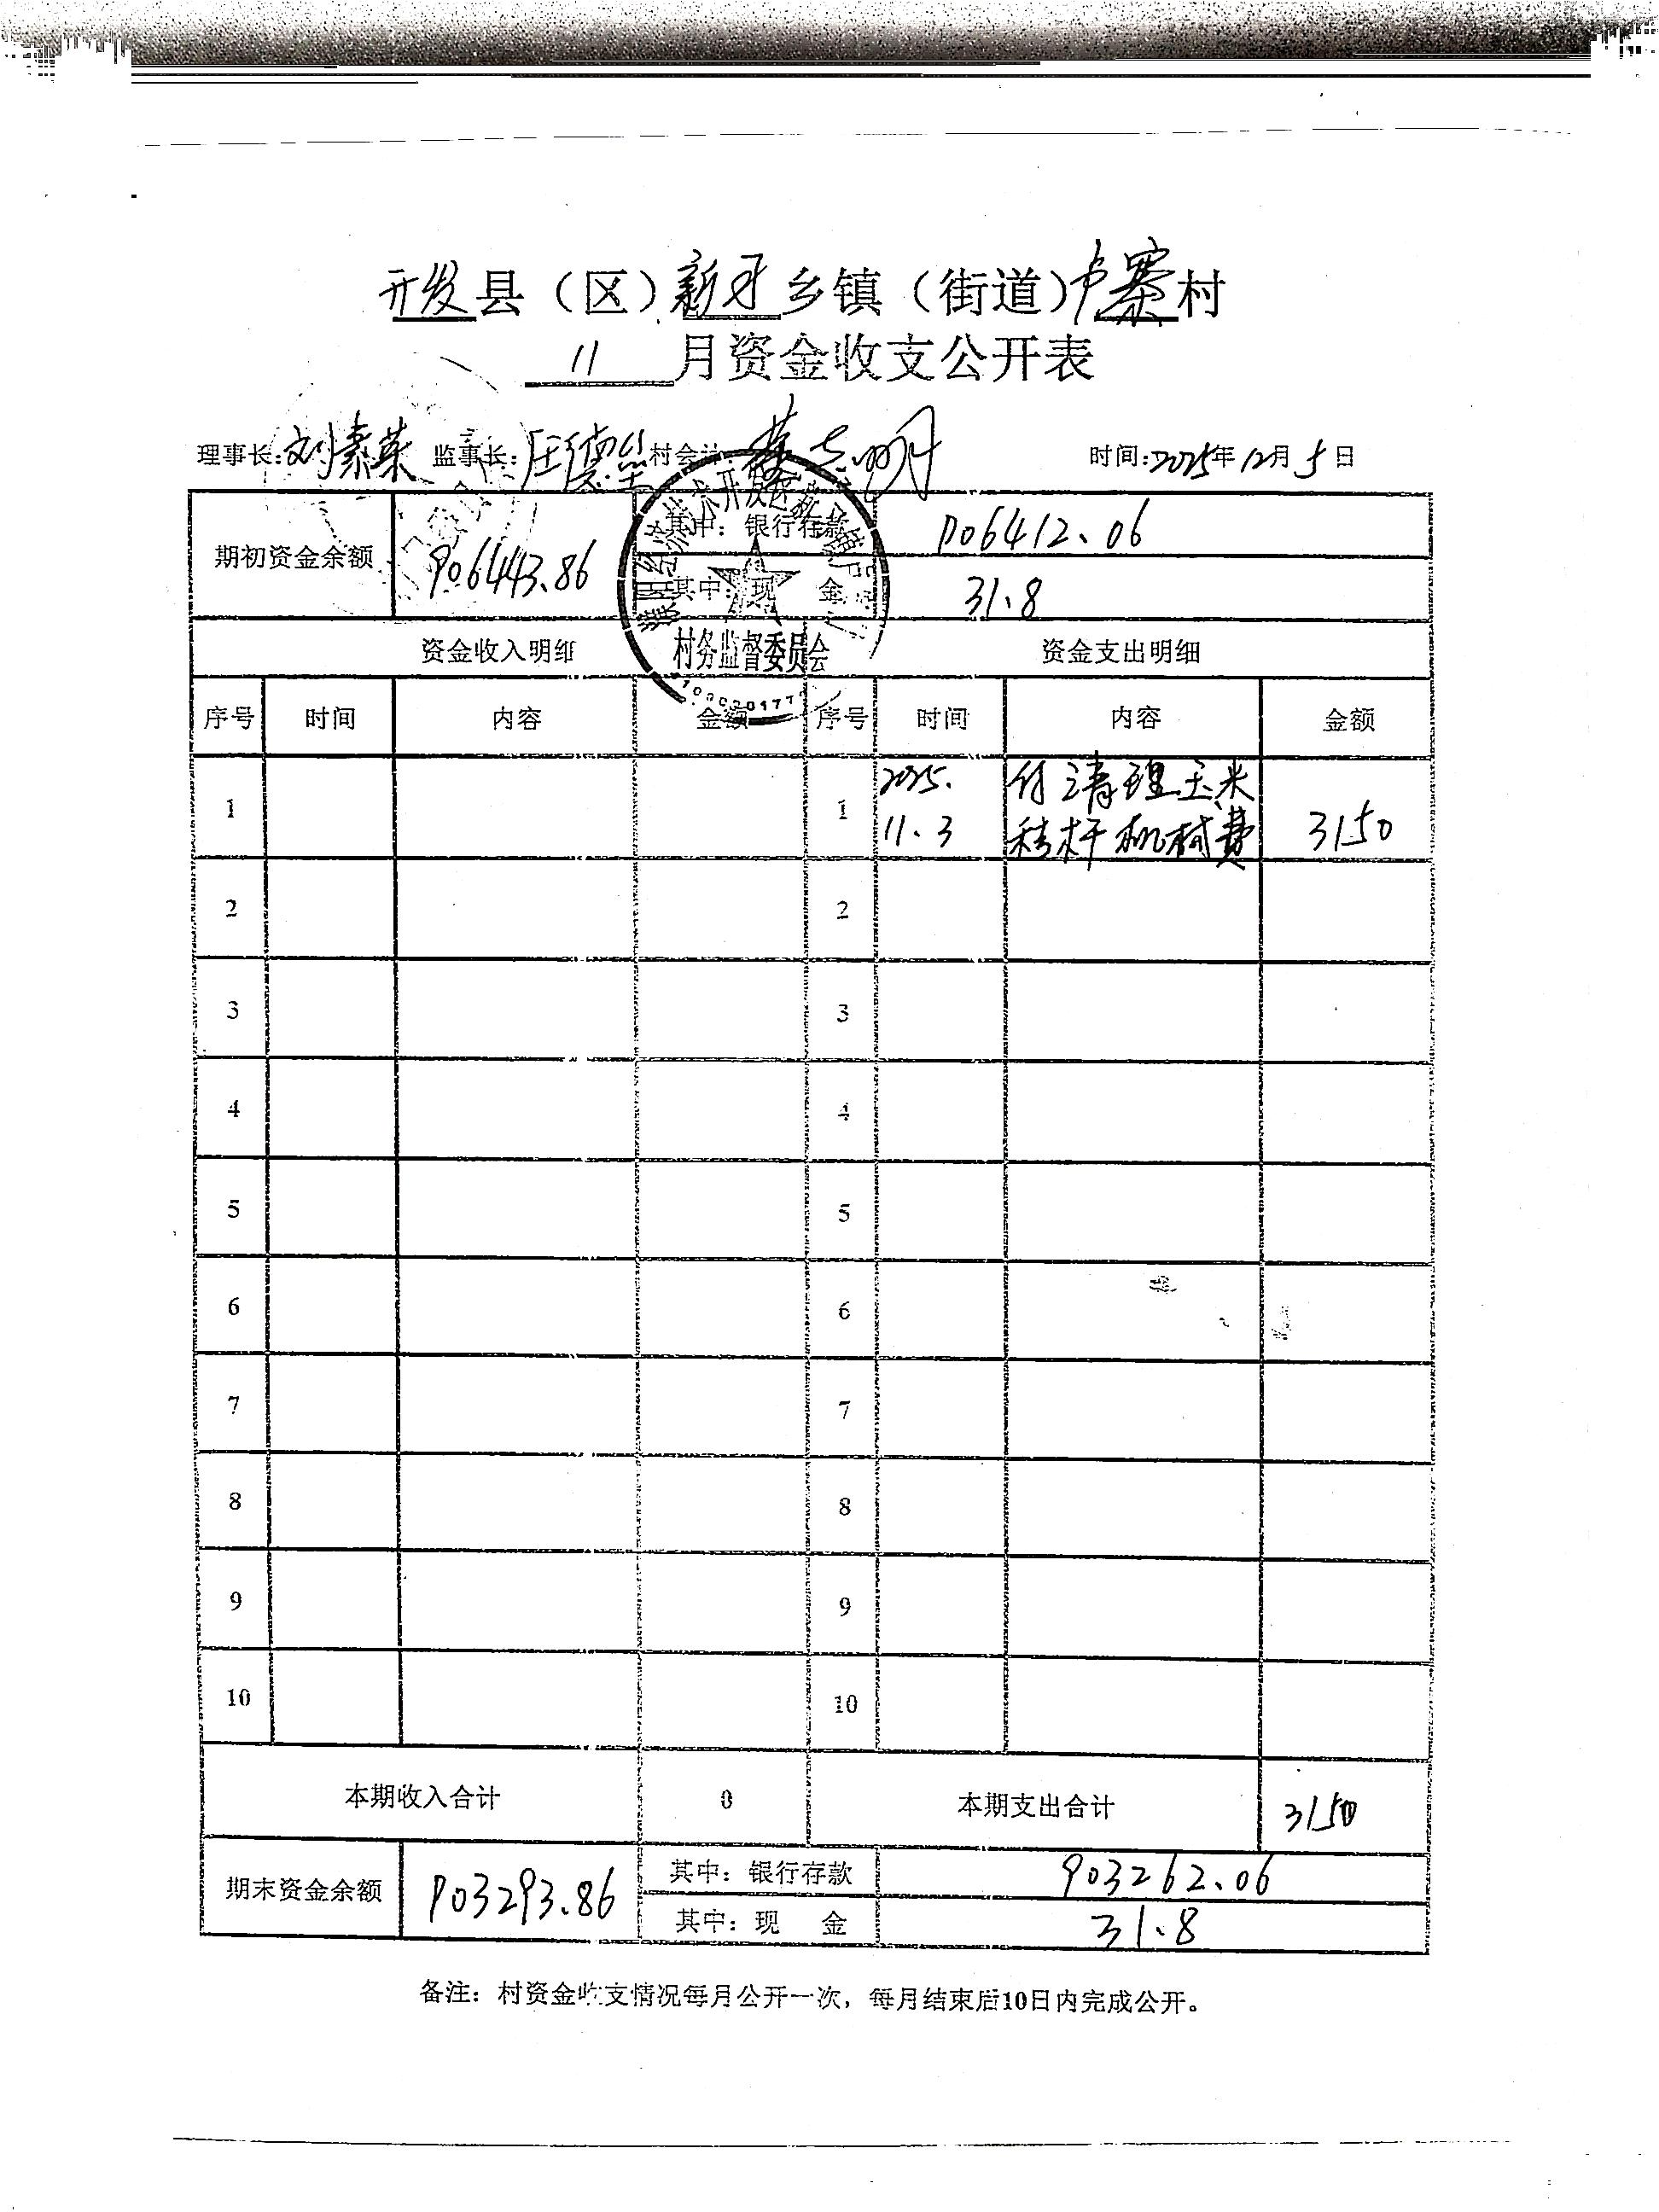 开发县（区）新习乡镇（街道）卢寨村
11月资金收支公开表
理事长：刘素英 监事长： 村会计： 时间：2025年12月5日
期初资金余额 906443.86 其中：银行存款 906412.06
其中：现 金 31.8
濮阳经济技术开发区新习镇卢寨
村务监督委员会
资金收入明细 资金支出明细
序号 时间 内容 金额 序号 时间 内容 金额
1 1 2025.11.3 付清理玉米秸杆机械费 3150
2 2
3 3
4 4
5 5
6 6
7 7
8 8
9 9
10 10
本期收入合计 0 本期支出合计 3150
期末资金余额 903293.86 其中：银行存款 903262.06
其中：现 金 31.8
备注：村资金收支情况每月公开一次，每月结束后10日内完成公开。